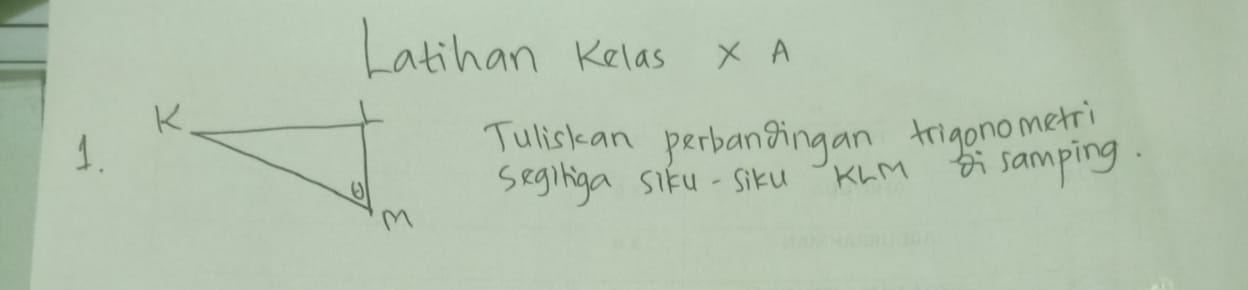 Latihan Kelas X A
1.
K
L
θ
M
Tuliskan perbandingan trigonometri
segitiga siku-siku KLM di samping.